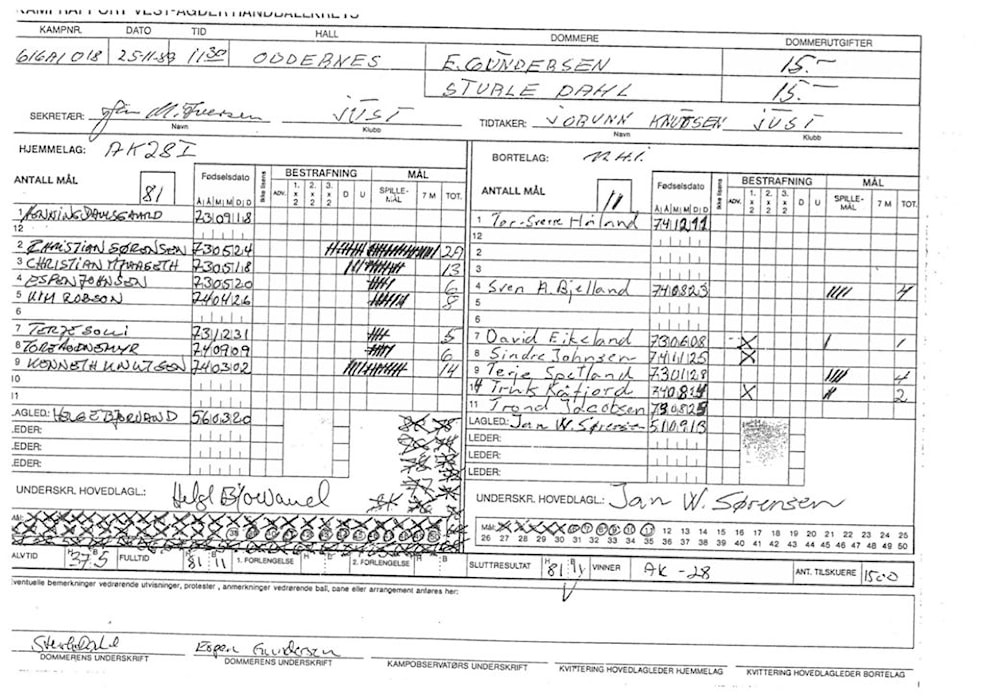 KAMPRAPPORT VEST-AGDER HÅNDBALLKRETS
KAMPNR. DATO TID HALL DOMMERE DOMMERUTGIFTER
616A1 018 25-11-89 11.30 ODDERNES E. GUNDERSEN 15.-
STURLE DAHL 15.-
SEKRETÆR: M. Iversen JUST TIDTAKER: JORUNN KNUTSEN JUST
Navn Klubb Navn Klubb
HJEMMELAG: AK28 I
ANTALL MÅL 81
Fødselsdato Ikke lisens BESTRAFNING MÅL
Å Å M M D D ADV. 1. x 2 2. x 2 3. x 2 D U SPILLE-MÅL 7 M TOT.
1 730918
12
2 CHRISTIAN SØRENSEN 730524 29
3 CHRISTIAN 730518 13
4 ESPEN JOHNSEN 730520 6
5 KIM ROBSON 740426 8
6
7 TERJE 731231 5
8 TORE 740909 6
9 KENNETH KNUTSEN 740302 14
10
11
LAGLED: HELGE BJORVAND 560320
LEDER:
LEDER:
LEDER:
UNDERSKR. HOVEDLAGL.: Helge Bjorvand
BORTELAG: N.H.I.
ANTALL MÅL 11
Fødselsdato Ikke lisens BESTRAFNING MÅL
Å Å M M D D ADV. 1. x 2 2. x 2 3. x 2 D U SPILLE-MÅL 7 M TOT.
1 Tor-Sverre Håland 741211
12
2
3
4 Sven A. Bjelland 740823 4
5
6
7 David Eikeland 730608 X 1
8 Sindre Johnsen 741125 X
9 Terje Spetland 730128 4
X 2
11 Trond Jacobsen 730825
LAGLED: Jan W. Sørensen 510913
LEDER:
LEDER:
LEDER:
UNDERSKR. HOVEDLAGL.: Jan W. Sørensen
Mål: 12 13 14 15 16 17 18 19 20 21 22 23 24 25
26 27 28 29 30 31 32 33 34 35 36 37 38 39 40 41 42 43 44 45 46 47 48 49 50
HALVTID H 37 B 5 FULLTID H 81 B 11 1. FORLENGELSE H B 2. FORLENGELSE H B SLUTTRESULTAT H 81 B 11 VINNER AK -28 ANT. TILSKUERE 1500
Eventuelle bemerkninger vedrørende utvisninger, protester, anmerkninger vedrørende ball, bane eller arrangement anføres her:
Sturle Dahl Espen Gundersen
DOMMERENS UNDERSKRIFT DOMMERENS UNDERSKRIFT KAMPOBSERVATØRS UNDERSKRIFT KVITTERING HOVEDLAGLEDER HJEMMELAG KVITTERING HOVEDLAGLEDER BORTELAG